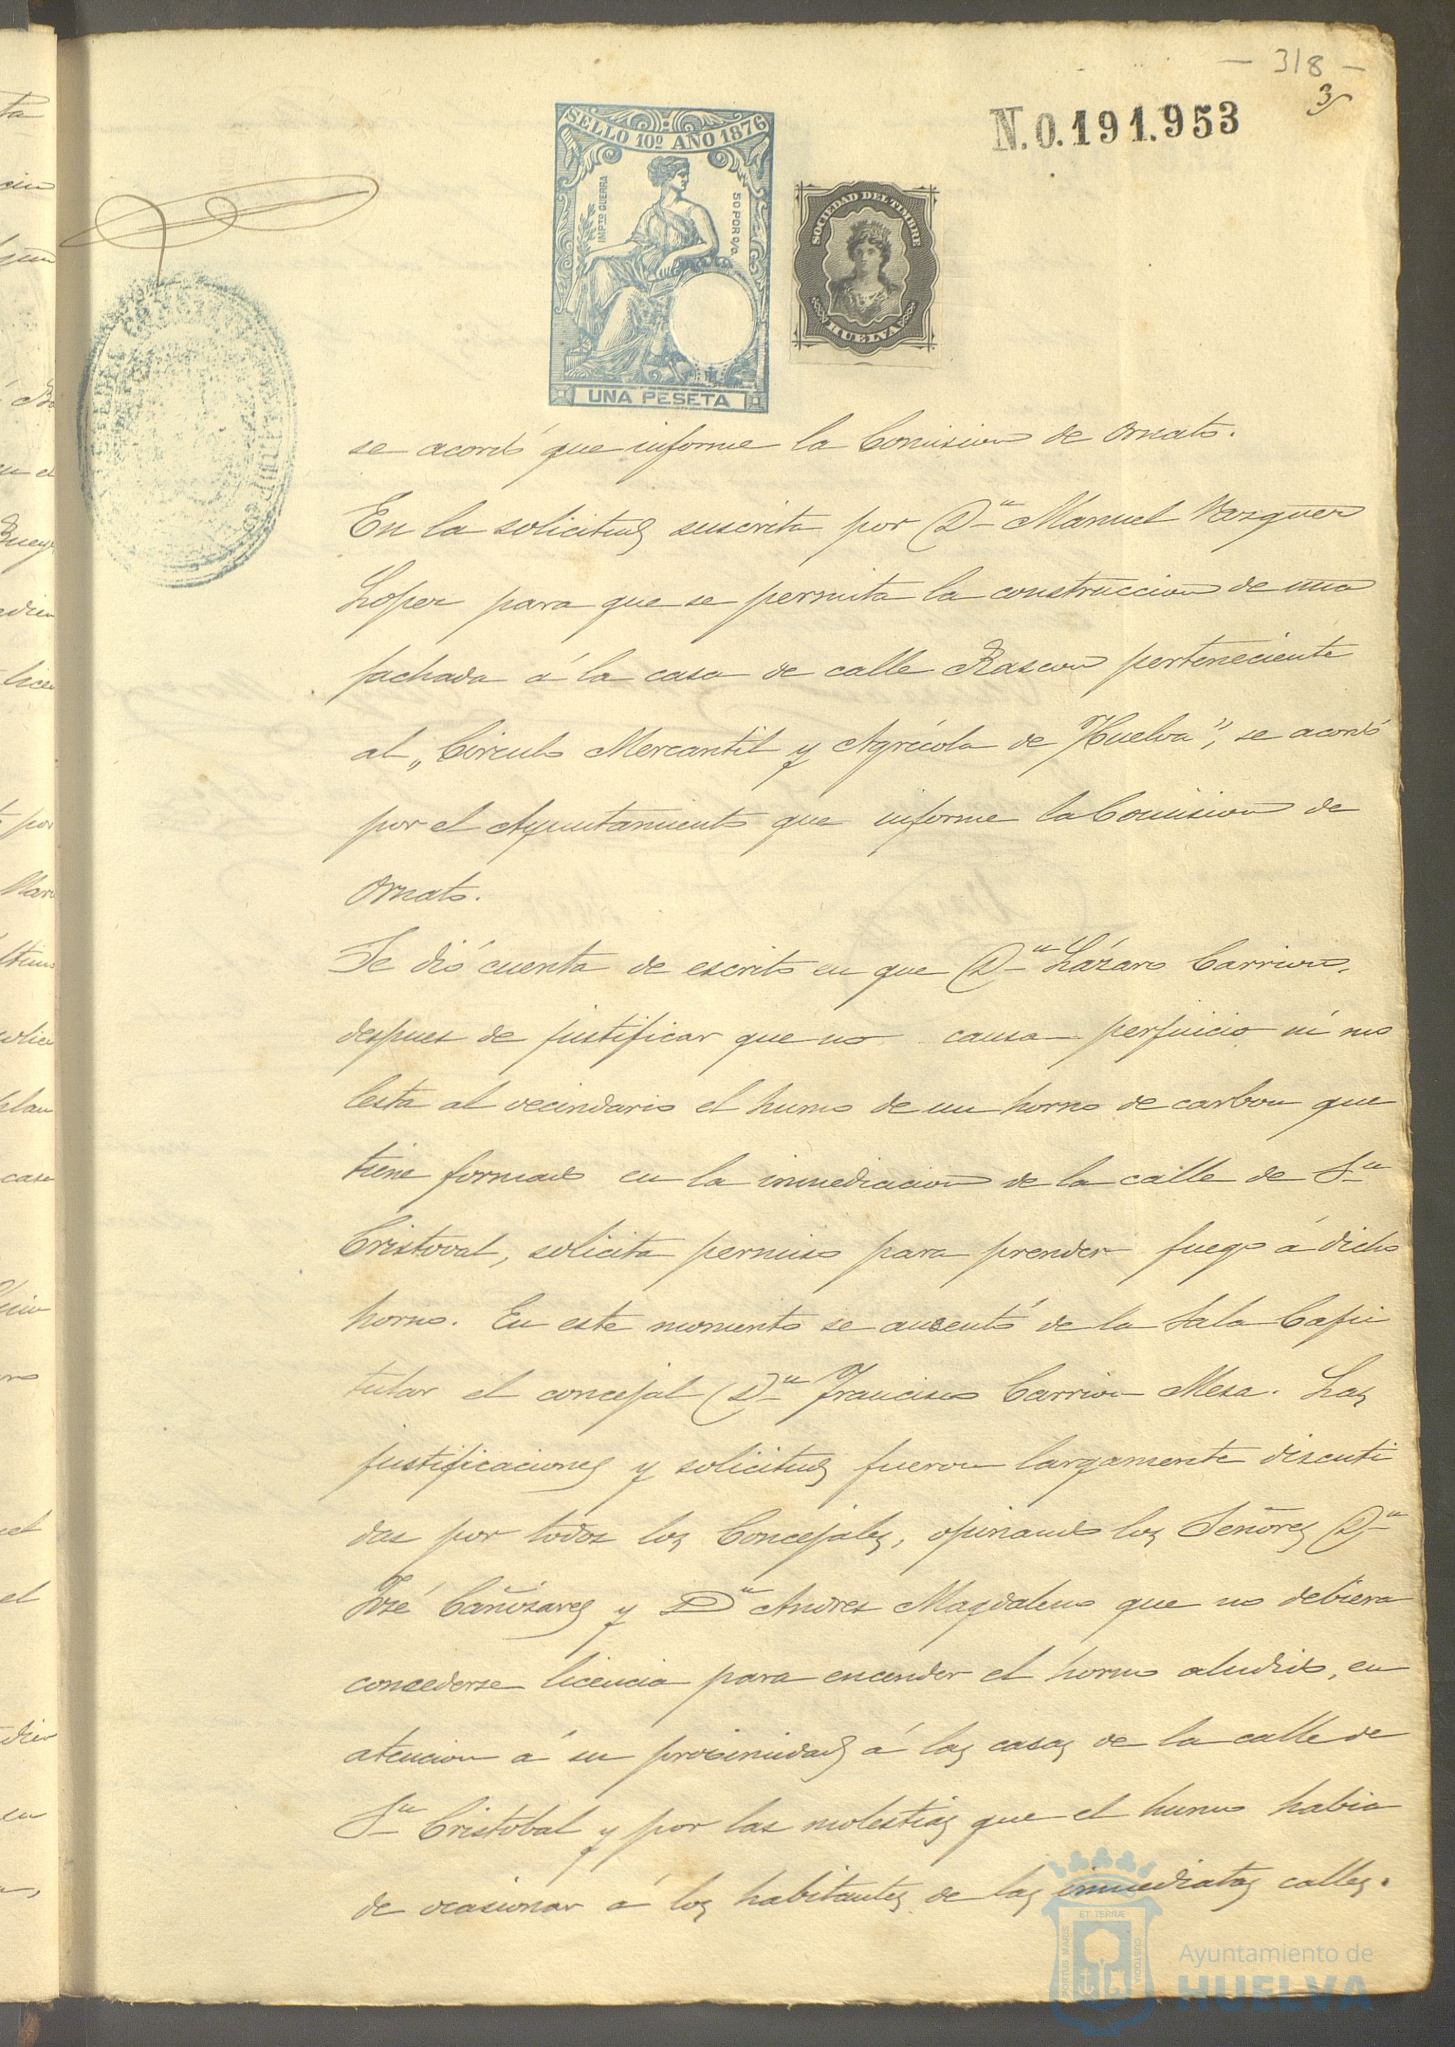 — 318 —
SELLO 10º AÑO 1876
IMPTO GUERRA
50 POR 0/0
UNA PESETA
SOCIEDAD DEL TIMBRE
HUELVA
N.0.191.953
se acordó que informe la Comision de Ornato.
En la solicitud suscrita por Dn Manuel Vazquez
Lopez para que se permita la construccion de una
fachada á la casa de calle Rascon perteneciente
al „Circulo Mercantil y Agrícola de Huelva”, se acordó
por el Ayuntamiento que informe la Comision de
Ornato.
Se dió cuenta de escrito en que Dn Lázaro Carrion,
despues de justificar que no causa perjuicio ni mo
lesta al vecindario el humo de un horno de carbon que
tiene formado en la inmediacion de la calle de Sn
Cristoval, solicita permiso para prender fuego á dicho
horno. En este momento se ausentó de la Sala Capi
tular el concejal Dn Francisco Carrion Mesa. Las
justificaciones y solicitud fueron largamente discuti
das por todos los Concejales, opinando los Señores Dn
José Cañizares y Dn Andres Magdaleno que no debiera
concederse licencia para encender el horno aludido, en
atencion á su proximidad á las casas de la calle de
Sn Cristobal y por las molestias que el humo habia
de ocasionar á los habitantes de las inmediatas calles.
PORTUS MARIS ET TERRÆ CUSTODIA
Ayuntamiento de
HUELVA